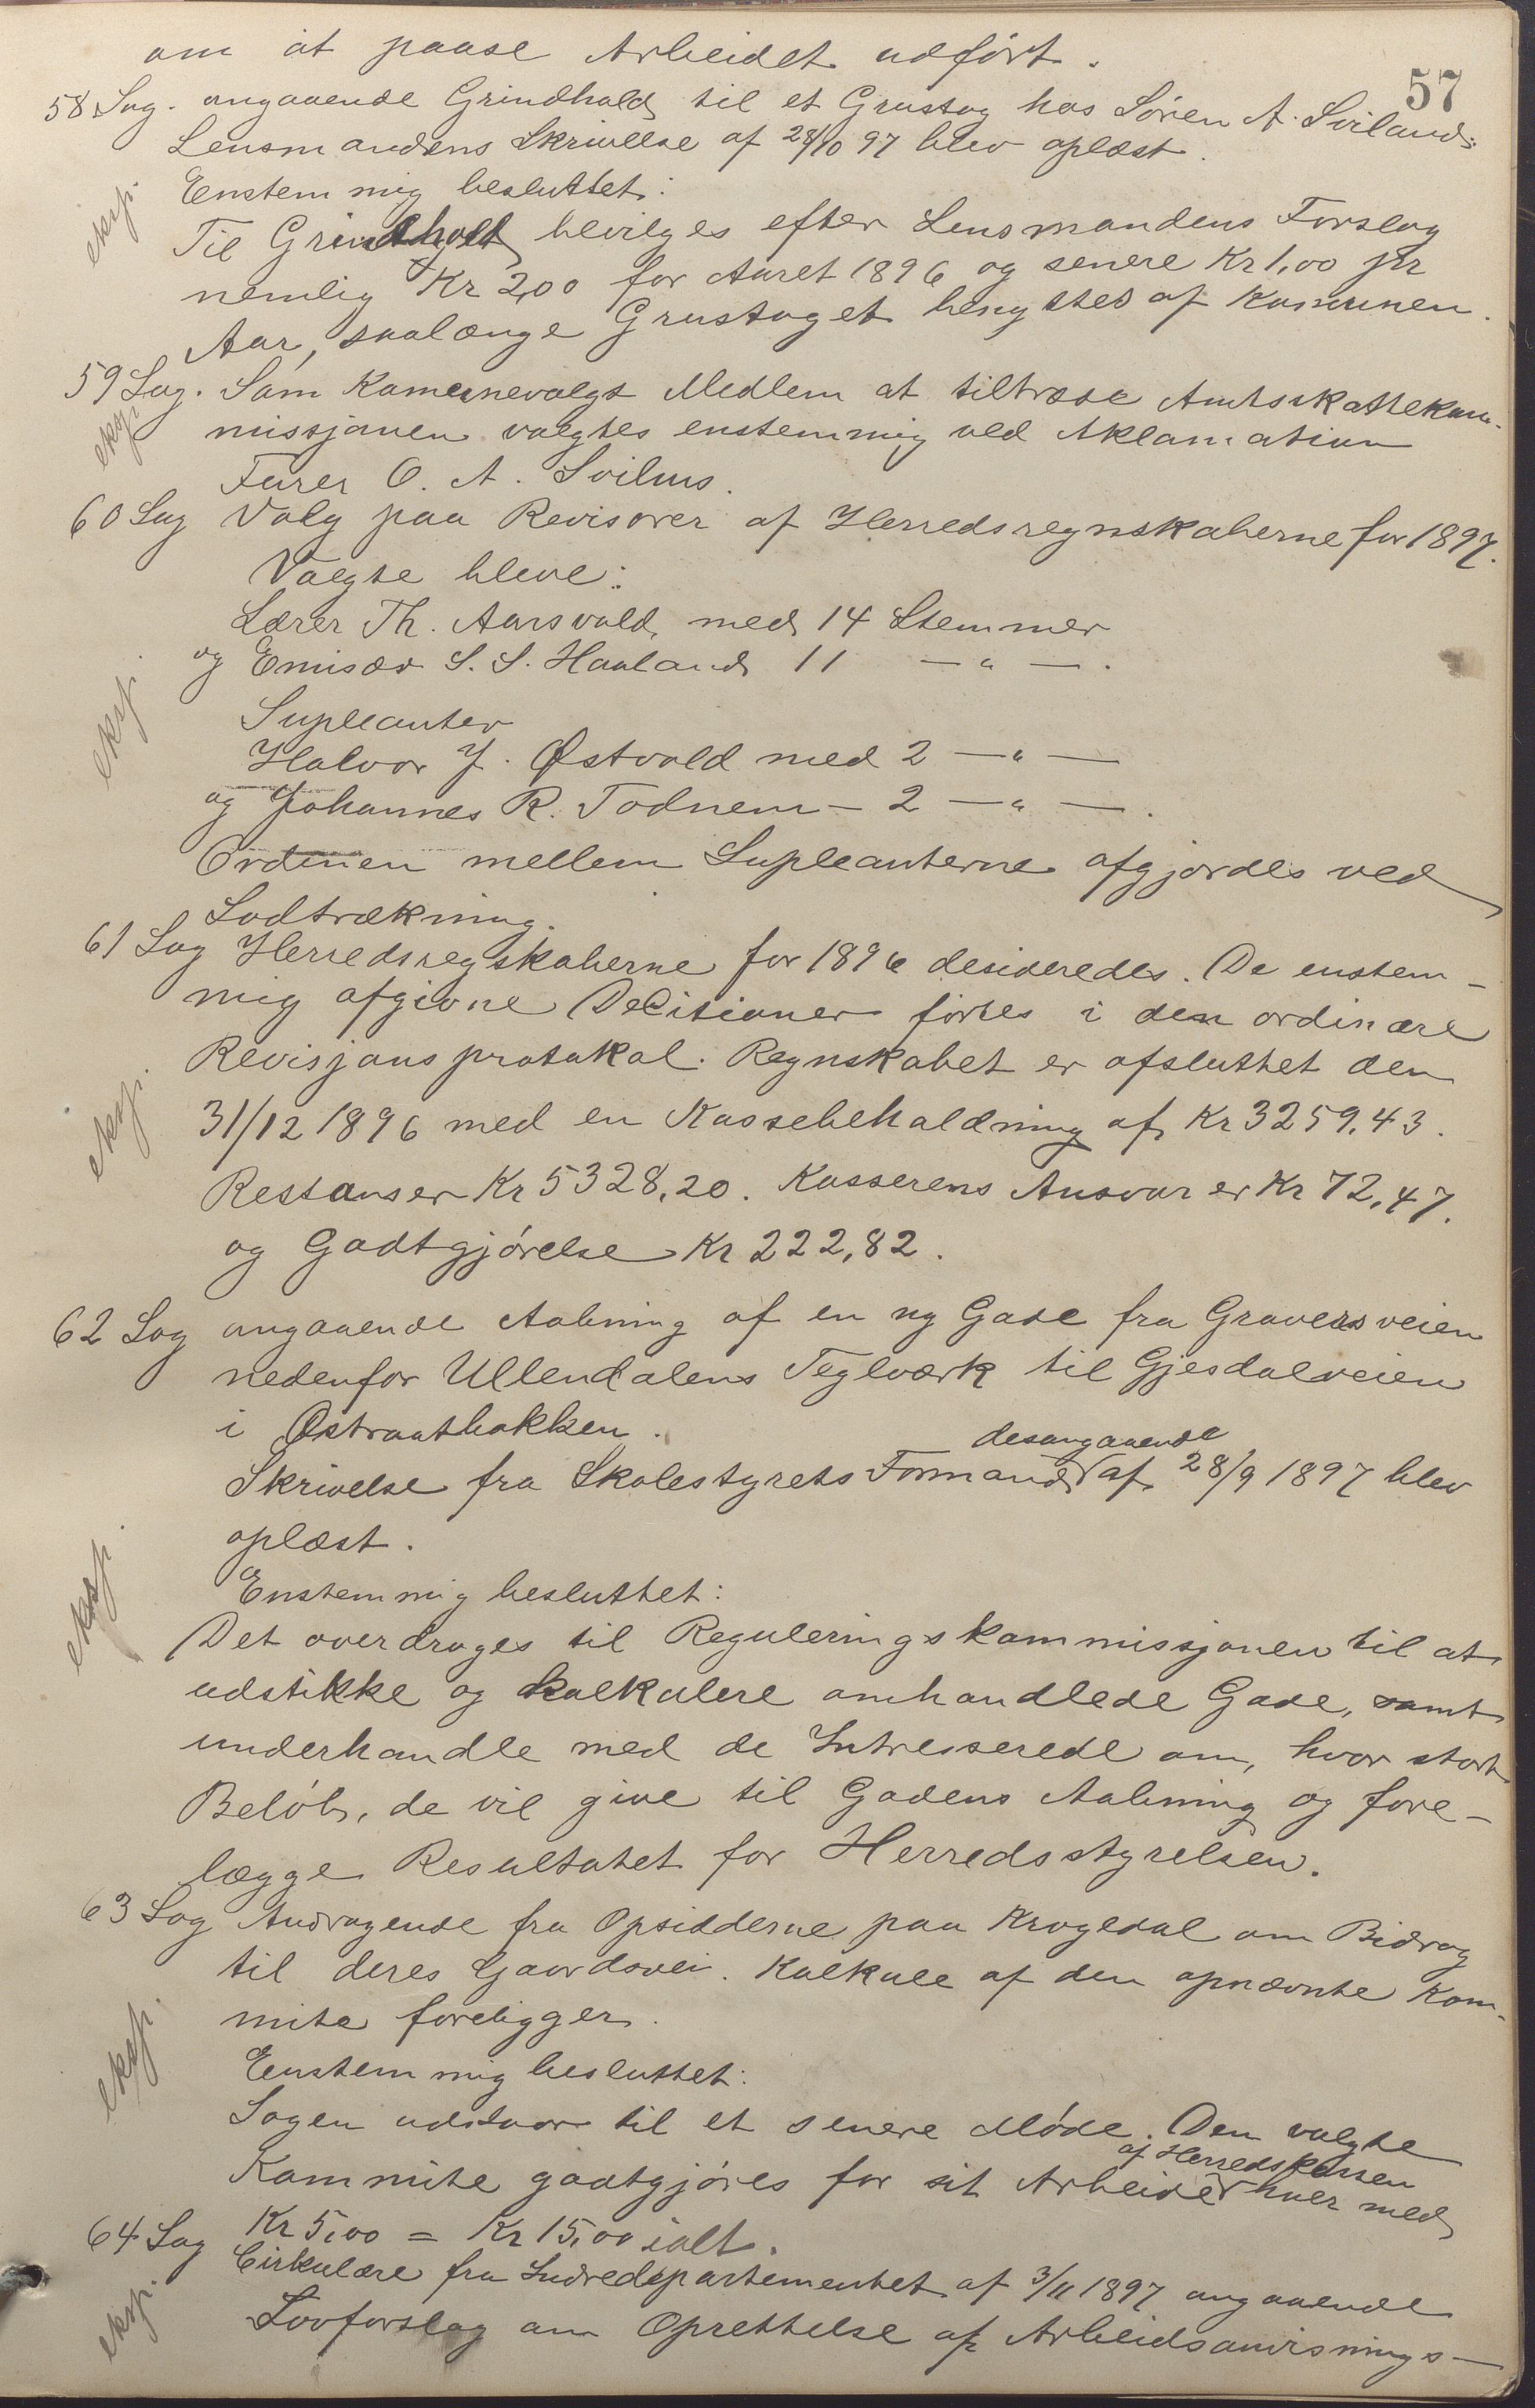 57
om at paase Arbeidet udført.
58 Sag. angaaende Grindhold til et Grustag hos Søren A. Sviland.
Lensmandens Skrivelse af 28/10 97 blev oplæst.
eksp.
Enstemmig besluttet:
Til Grindhold bevilges efter Lensmandens Forslag
nemlig Kr 2,00 for Aaret 1896 og senere Kr 1,00 pr
Aar, saalænge Grustaget benyttes af Kommunen.
59 Sag. Som Kommunevalgt Medlem at tiltræde Amtsskattekom-
eksp.
missjonen valgtes enstemmig ved Aklamation
Furer O. A. Svilms.
60 Sag Valg paa Revisorer af Herredsregnskaberne for 1897.
Valgte bleve:
Lærer Th. Aarsvold med 14 Stemmer
og Emisær S. S. Haaland 11 — " — .
eksp.
Supleanter
Halvor J. Østvold med 2 — " —
og Johannes R. Todnem — 2 — " — .
Ordenen mellem Supleanterne afgjordes ved
Lodtrækning.
61 Sag Herredsregskaberne for 1896 desideredes. De enstem-
mig afgivne Decitioner førtes i den ordinære
Revisjonsprotokol. Regnskabet er afsluttet den
eksp.
31/12 1896 med en Kassebeholdning af Kr 3259,43.
Restanser Kr 5328,20. Kasserens Ansvar er Kr 72,47.
og Godtgjørelse Kr 222,82.
62 Sag angaaende Aabning af en ny Gade fra Graversveien
nedenfor Ullendalens Teglværk til Gjesdalveien
i Østraatbakken.
Skrivelse fra Skolestyrets Formand desangaaende af 28/9 1897 blev
oplæst.
eksp.
Enstemmig besluttet:
Det overdrages til Reguleringskommissjonen til at
udstikke og kalkulere omhandlede Gade, samt
underhandle med de Intresserede om, hvor stort
Beløb, de vil give til Gadens Aabning og fore-
lægge Resultatet for Herredsstyrelsen.
63 Sag Andragende fra Opsidderne paa Krogedal om Bidrag
til deres Gaardsvei. Kalkule af den opnævnte Kom-
mite foreligger.
eksp.
Enstemmig besluttet:
Sagen udstaar til et senere Møde. Den valgte
Kommite godtgjøres for sit Arbeide af Herredskassen hver med
Kr 5,00 = Kr 15,00 ialt.
64 Sag Cirkulære fra Indredepartementet af 3/11 1897 angaaende
eksp.
Lovforslag om Oprettelse af Arbeidsanvisnings-